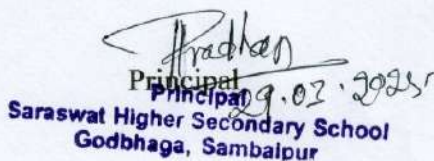 Pradhan
Principal
Principal 29.03.2025
Saraswat Higher Secondary School
Godbhaga, Sambalpur